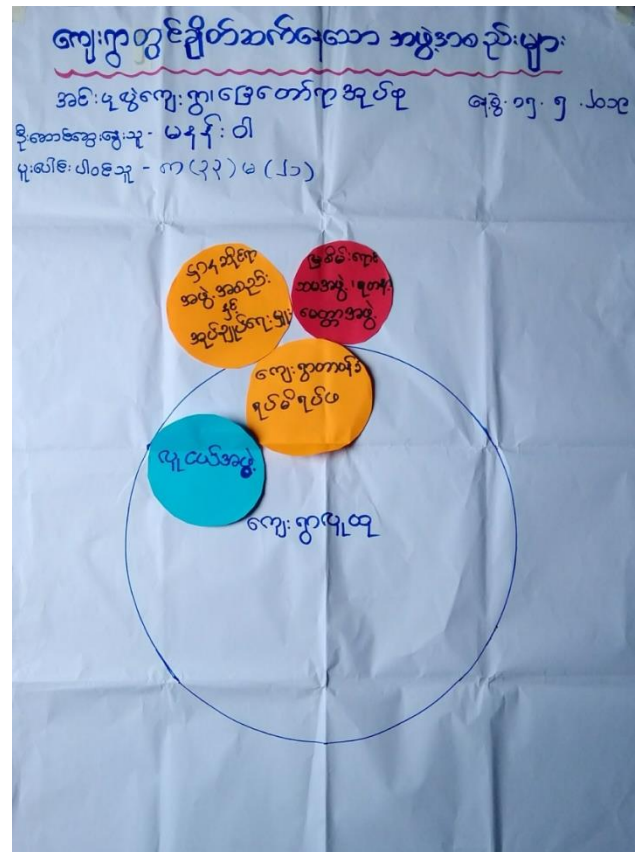 ကျေးရွာတွင်ချိတ်ဆက်နေသော အဖွဲ့အစည်းများ
အင်းပုလွဲကျေးရွာ၊ခြေတော်ရာအုပ်စု နေ့စွဲ. ၁၅. ၅. ၂၀၁၉
ဦးဆောင်ဆွေးနွေးသူ - မနန်းဝါ
ပူးပေါင်းပါဝင်သူ - ကာ (၃၃) မ (၂၁)
ဌာနဆိုင်ရာ
အဖွဲ့အစည်း
နှင့်
အုပ်ချုပ်ရေးမှူး
မြစိမ်းရောင်
အဖွဲ့၊
မေတ္တာအဖွဲ့
ကျေးရွာတာဝန်ခံ
ရပ်မိရပ်ဖ
လူငယ်အဖွဲ့
ကျေးရွာလူထု